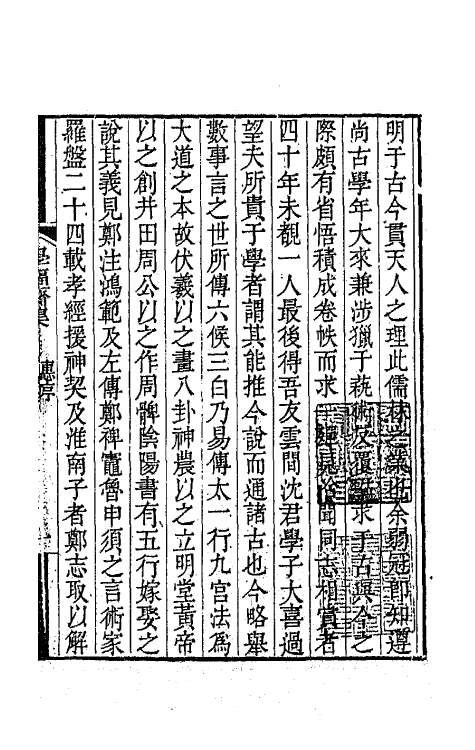 明于古今貫天人之理此儒林之業也余弱冠即知遵
尚古學年大來兼涉獵于蓺術反覆研求于古與今之
際頗有省悟積成卷帙而求一殫見洽聞同志相賞者
四十年未覯一人最後得吾友雲間沈君學子大喜過
望夫所貴于學者謂其能推今說而通諸古也今略舉
數事言之世所傳六候三白乃易傳太一行九宮法為
大道之本故伏羲以之畫八卦神農以之立明堂黃帝
以之創井田周公以之作周髀陰陽書有五行嫁娶之
說其義見鄭注鴻範及左傳鄭裨竈魯申須之言術家
羅盤二十四載孝經援神契及淮南子者鄭志取以解
學福齋集 惠序